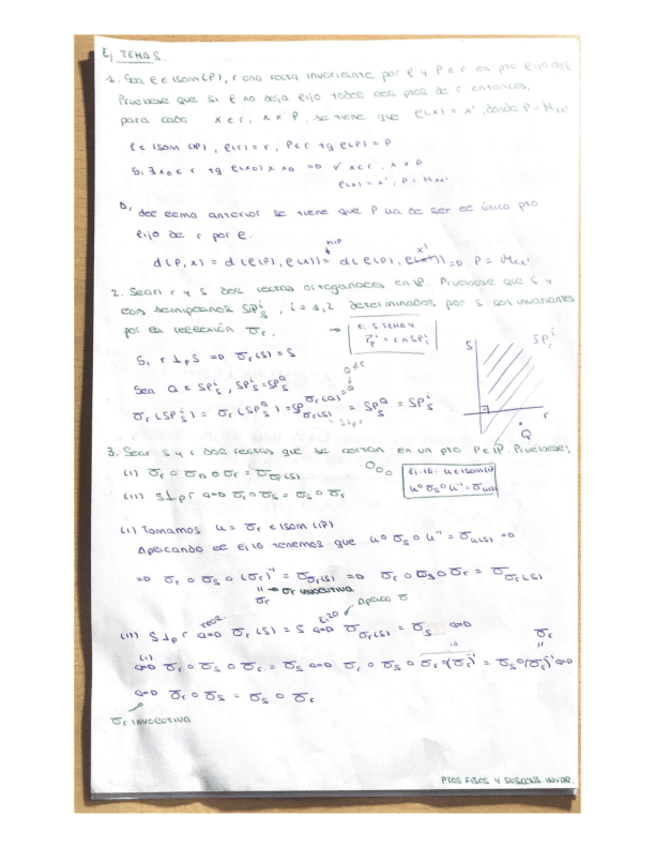 Ej TEMA 5.
1. Sea φ ∈ Isom(P), r una recta invariante por φ y P ∈ r es pto fijo de φ
Pruébese que si φ no deja fijo todos los ptos de r entonces,
para cada x ∈ r, x ≠ P, se tiene que φ(x) = x', donde P = Mxx'
φ ∈ Isom(P), φ(r) = r, P ∈ r tq φ(P) = P
Si ∃ x0 ∈ r tq φ(x0) ≠ x0 => ∀ x ∈ r, x ≠ P
φ(x) = x', P = Mxx'
D/ del lema anterior se tiene que P ha de ser el único pto
fijo de r por φ.
d(P, x) = d(φ(P), φ(x)) = d(φ(P), x') => P = Mxx'
2. Sean r y s dos rectas ortogonales en P. Pruébese que s y
los semiplanos SPsⁱ, i = 1,2 determinados por s son invariantes
por la reflexión σr.
→ Ej. 5 TEMA 4
rpⁱ = r ∩ SPsⁱ
Si r ⊥p s => σr(s) = s
Q ∈ r
Sea Q ∈ SPsⁱ, SPsⁱ = SPs^Q
σr(SPsⁱ) = σr(SPs^Q) = SPσr(s)^σr(Q)=Q = SPs^Q = SPsⁱ
s⊥p r
s
SPrⁱ
r
Q
3. Sean s y r dos rectas que se cortan en un pto P ∈ P. Pruébese:
(i) σr ∘ σs ∘ σr = σσr(s)
(ii) s ⊥p r <=> σr ∘ σs = σs ∘ σr
Ej. 16. u ∈ Isom(P)
u ∘ σs ∘ u⁻¹ = σu(s)
(i) Tomamos u = σr ∈ Isom(P)
Aplicando el Ej 16 tenemos que u ∘ σs ∘ u⁻¹ = σu(s) =>
=> σr ∘ σs ∘ (σr)⁻¹ = σσr(s) => σr ∘ σs ∘ σr = σσr(s)
σr → σr involutiva
Aplico σ
(ii) s ⊥p r <=> σr(s) = s <=> σσr(s) = σs <=>
<=> σr ∘ σs ∘ σr = σs <=> σr ∘ σs ∘ σr ∘ (σr)⁻¹ = σs ∘ (σr)⁻¹ <=>
<=> σr ∘ σs = σs ∘ σr
σr involutiva
PTOS FIJOS Y SUBCONJ INVAR.